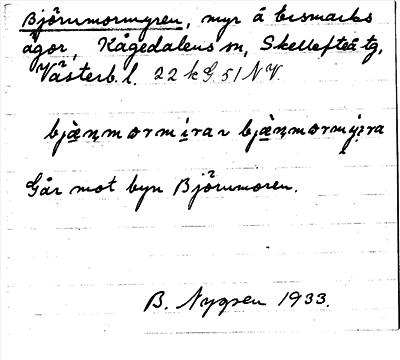 Björnmormyren, myr å bismarks
ägor, Kågedalens sn, Skellefteå tg,
Västerb. l. 22 k G 51 NV.
bjæ̀ṇmormíra ~ bjæ̀ṇmormýra
Går mot byn Björnmoren.
B. Nygren 1933.